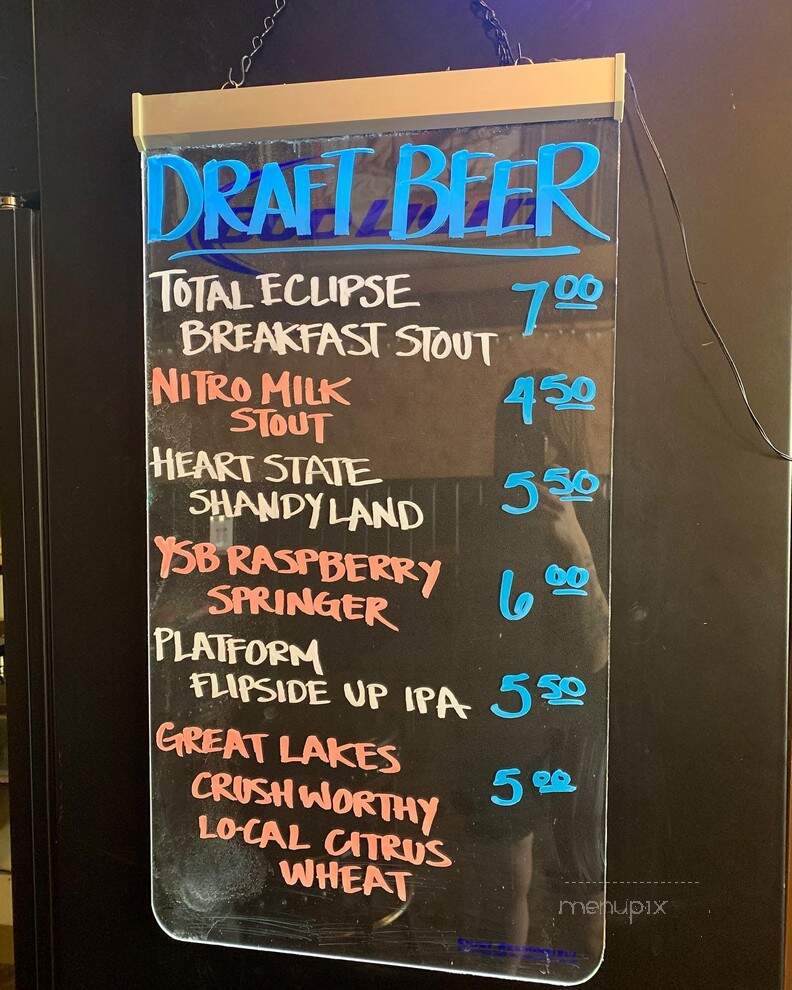 DRAFT BEER
TOTAL ECLIPSE
BREAKFAST STOUT 7.00
NITRO MILK
STOUT 4 50
HEART STATE
SHANDYLAND 5 50
YSB RASPBERRY
SPRINGER 6 00
PLATFORM
FLIPSIDE UP IPA 5 50
GREAT LAKES
CRUSHWORTHY 5 00
LO-CAL CITRUS
WHEAT
menupix